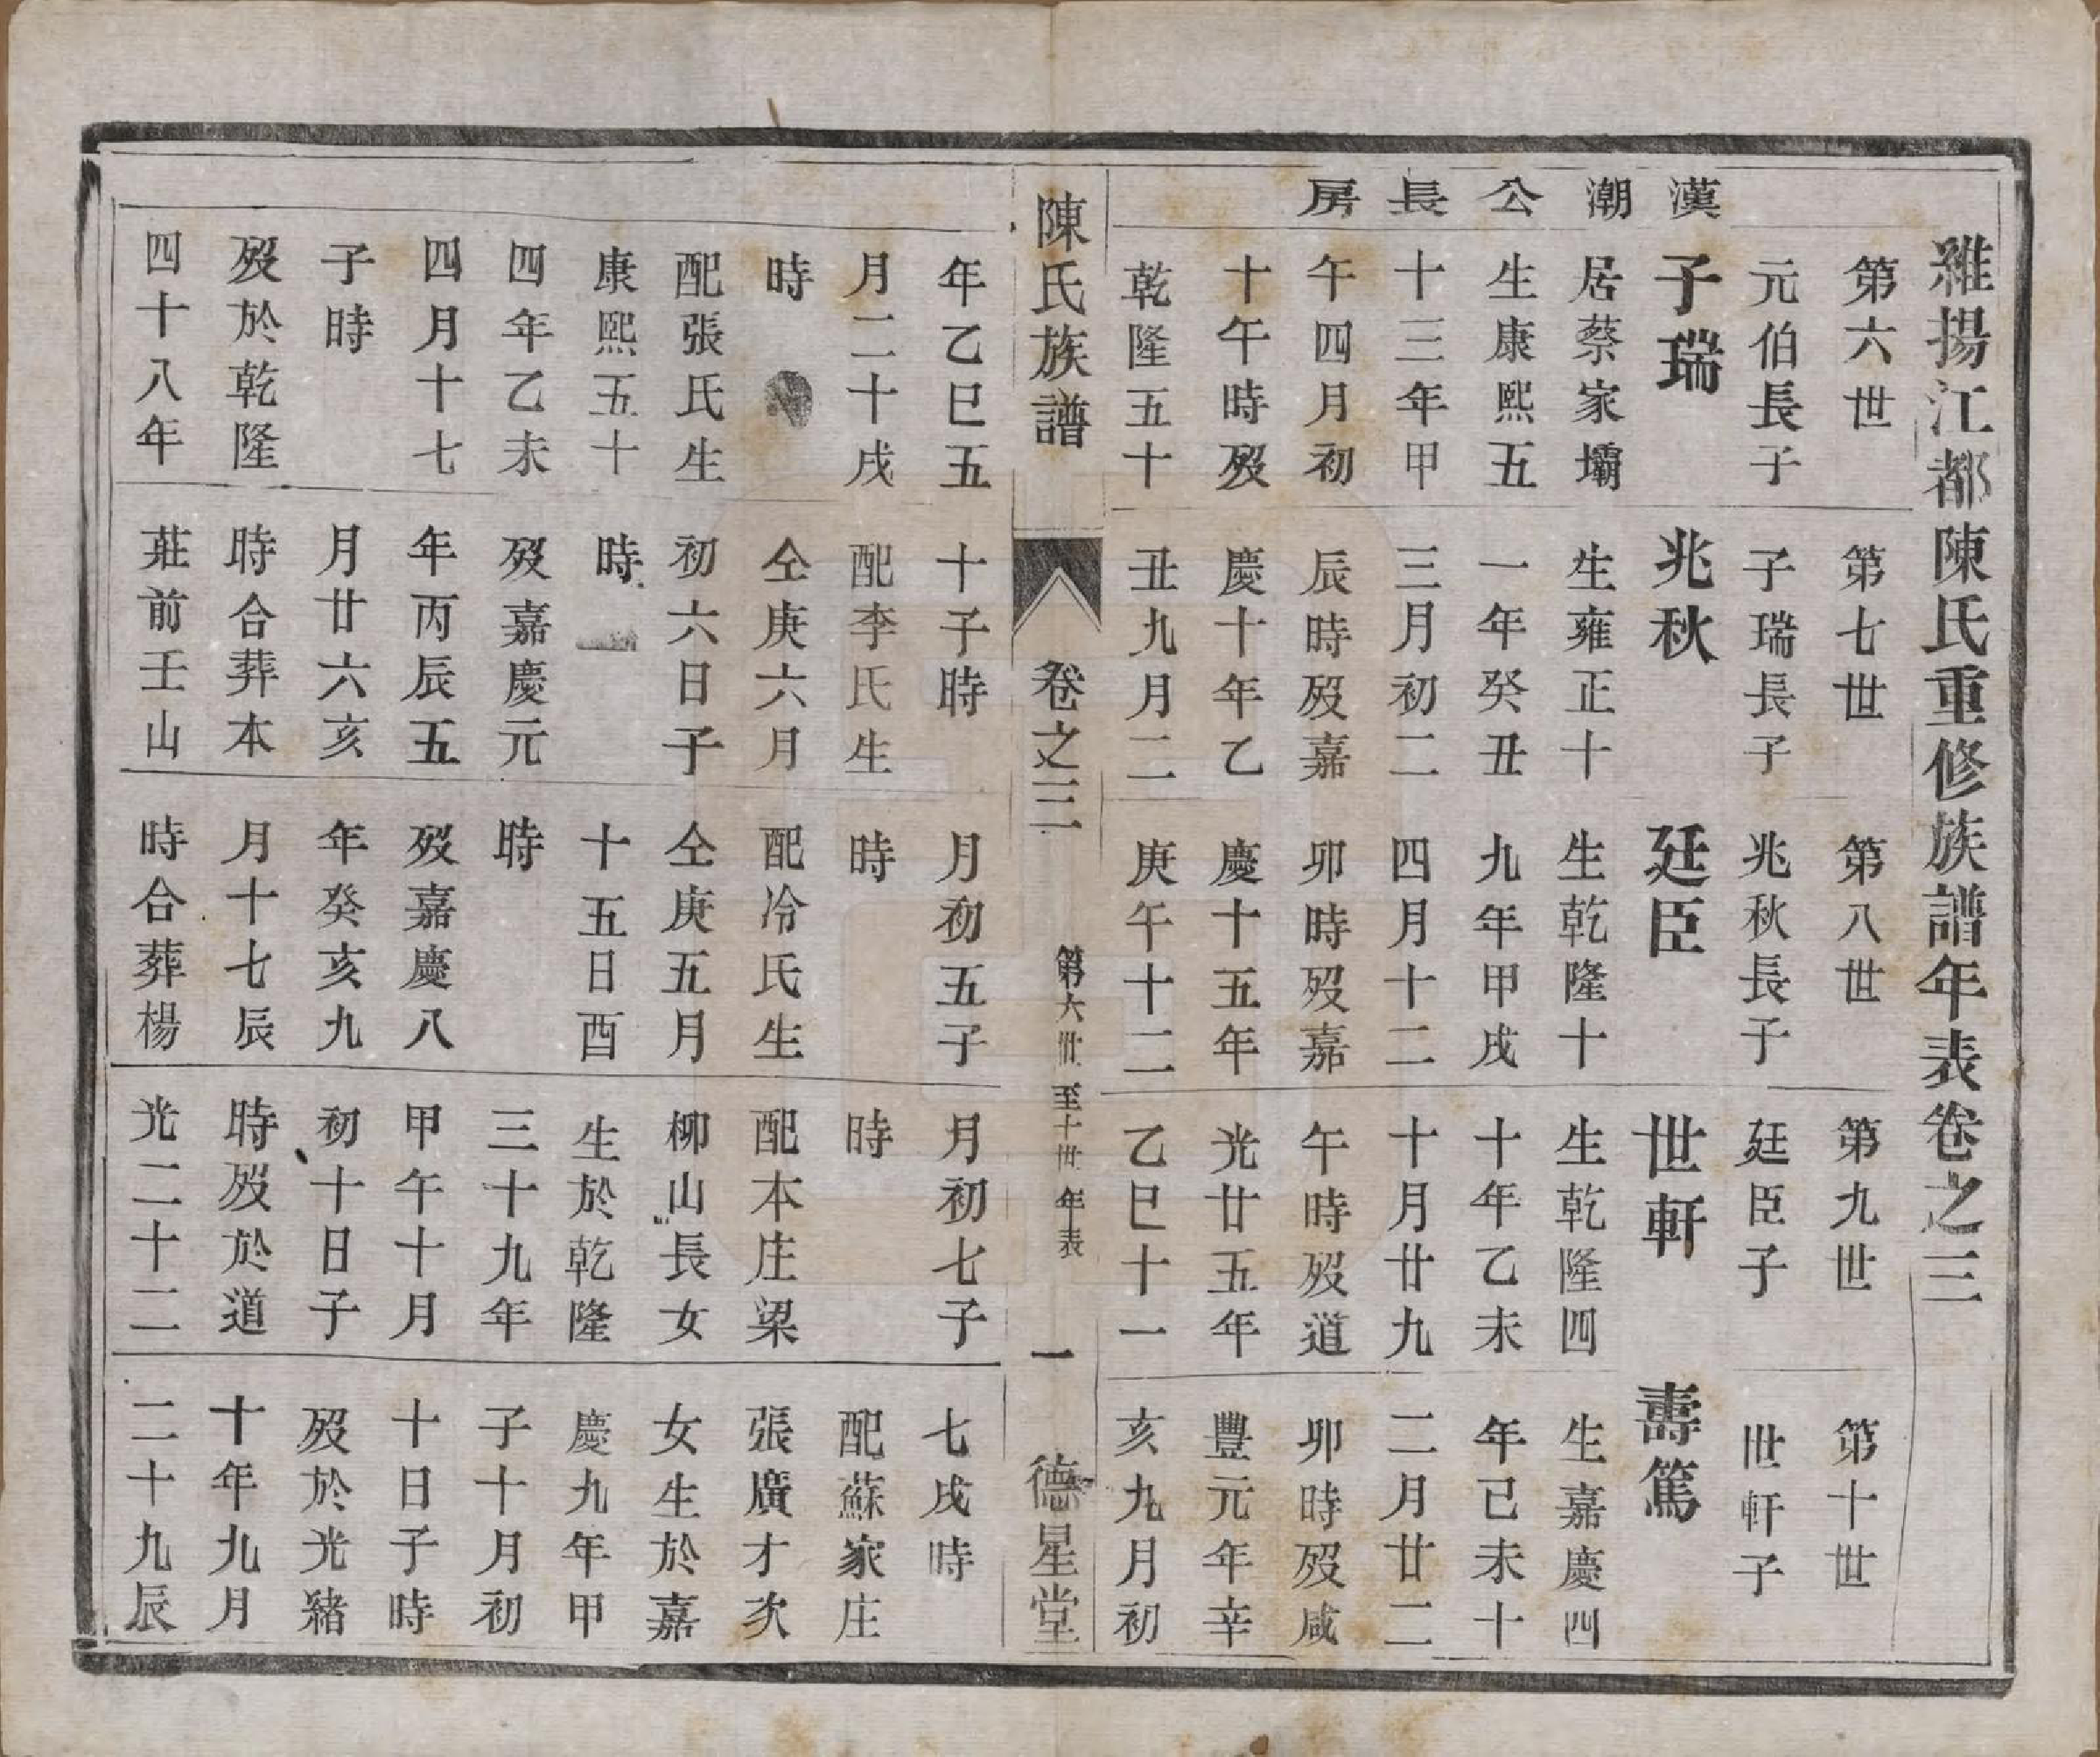 維揚江都陳氏重修族譜年表卷之三
漢潮公長房
第六世
元伯長子
子瑞
居蔡家壩
生康熙五
十三年甲
午四月初
十午時歿
乾隆五十
年乙巳五
月二十戌
時
配張氏生
康熙五十
四年乙未
四月十七
子時
歿於乾隆
四十八年
第七世
子瑞長子
兆秋
生雍正十
一年癸丑
三月初二
辰時歿嘉
慶十年乙
丑九月二
十子時
配李氏生
仝庚六月
初六日子
時
歿嘉慶元
年丙辰五
月廿六亥
時合葬本
莊前壬山
第八世
兆秋長子
廷臣
生乾隆十
九年甲戌
四月十二
卯時歿嘉
慶十五年
庚午十二
月初五子
時
配冷氏生
仝庚五月
十五日酉
時
歿嘉慶八
年癸亥九
月十七辰
時合葬楊
第九世
廷臣子
世軒
生乾隆四
十年乙未
十月廿九
午時歿道
光廿五年
乙巳十一
月初七子
時
配本庄梁
柳山長女
生於乾隆
三十九年
甲午十月
初十日子
時歿於道
光二十二
第十世
世軒子
壽篤
生嘉慶四
年己未十
二月廿二
卯時歿咸
豐元年辛
亥九月初
七戌時
配蘇家庄
張廣才次
女生於嘉
慶九年甲
子十月初
十日子時
歿於光緒
十年九月
二十九辰
陳氏族譜
卷之三
第六世至十世年表
一
德星堂